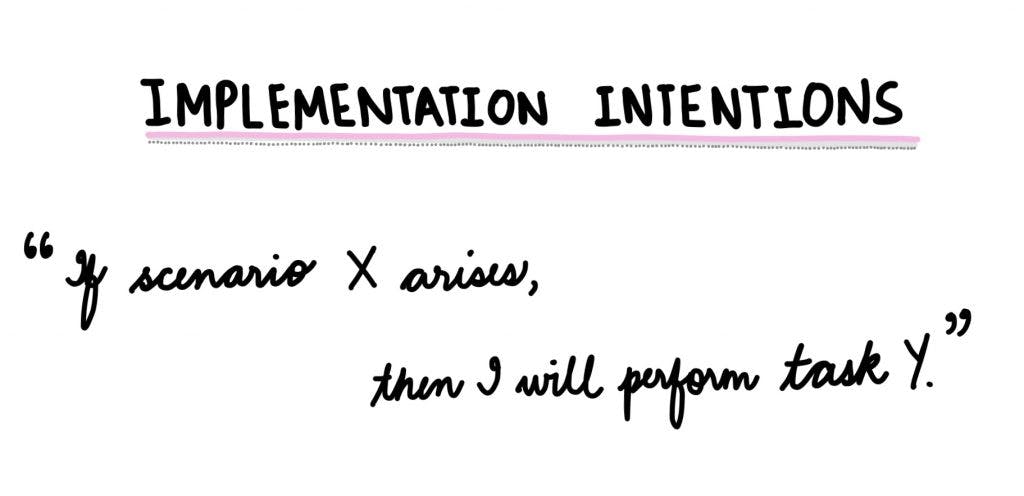 IMPLEMENTATION INTENTIONS
“If scenario X arises,
then I will perform task Y.”